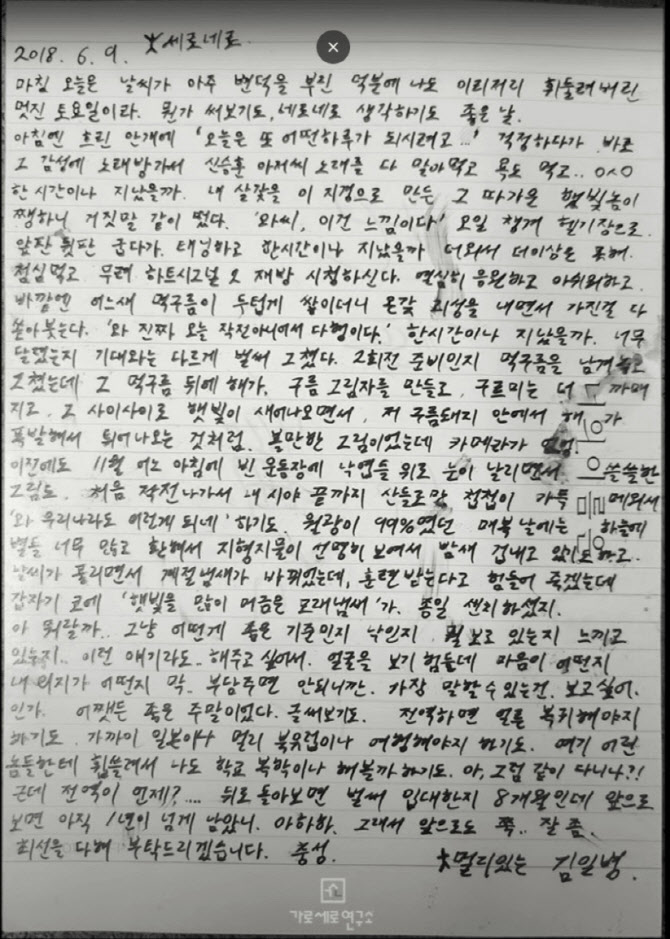 2018. 6. 9. 세로네로.
마침 오늘은 날씨가 아주 변덕을 부린 덕분에 나도 이리저리 휘둘려버린
멋진 토요일이라. 뭔가 써보기도, 네로네로 생각하기도 좋은 날.
아침엔 흐린 안개에 '오늘은 또 어떤하루가 되시려고...' 걱정하다가 바로
그 감성에 노래방가서 신승훈 아저씨 노래를 다 말아먹고 욕도 먹고..
한시간이나 지났을까. 내 살갗을 이 지경으로 만든 그 따가운 햇빛놈이
쨍하니 거짓말 같이 떴다. '와씨, 이건 느낌이다' 오일 챙겨 헬기장으로.
앞판 뒷판 굽다가. 태닝하고 한시간이나 지났을까 더워서 더이상은 못해.
점심먹고 무려 하트시그널 2 재방 시청하신다. 열심히 응원하고 아쉬워하고.
바깥엔 어느새 먹구름이 두텁게 쌓이더니 온갖 괴성을 내면서 가진걸 다
쏟아붓는다. '와 진짜 오늘 작전아니어서 다행이다.' 한시간이나 지났을까. 너무
닫혔는지 기대와는 다르게 벌써 그쳤다. 2회전 준비인지 먹구름을 남겨놓고
그쳤는데 그 먹구름 뒤에 해가. 구름 그림자를 만들고, 구르미는 더 까매
지고. 그 사이사이로 햇빛이 새어나오면서, 저 구름돼지 안에서 해가
폭발해서 튀어나오는 것처럼. 볼만한 그림이었는데 카메라가
이전에도 11월 어느 아침에 빈 운동장에 낙엽들 위로 눈이 날리면서 쓸쓸한
그림도. 처음 작전나가서 내 시야 끝까지 산들로만 첩첩이 가득 메워서
'와 우리나라도 이렇게 되네' 하기도. 월광이 99%였던 매복 날에는 하늘에
별들 너무 많고 환해서 지형지물이 선명히 보여서 밤새 겁내고 있기도하고.
날씨가 풀리면서 계절냄새가 바뀌었는데, 훈련받는다고 힘들어 죽겠는데
갑자기 코에 '햇빛을 많이 머금은 모래냄새'가. 종일 센치하셨지.
아 뭐랄까.. 그냥 어떤게 좋은 기준인지 낙인지 뭘 보고 있는지 느끼고
있는지.. 이런 얘기라도.. 해주고 싶어서. 얼굴을 보기 힘들데 마음이 어떤지
내 의지가 어떤지 막.. 부담주면 안되니깐. 가장 말할수있는건. 보고싶어.
인가. 어쨋든 좋은 주말이었다. 글써보기도. 전역하면 얼른 복귀해야지
하기도. 가까이 일본이나 멀리 북유럽이나 여행해야지 하기도. 여기 어린
놈들한테 휩쓸려서 나도 학교 복학이나 해볼까하기도. 아, 그럼 같이 다니나?!
근데 전역이 언제?.... 뒤로 돌아보면 벌써 입대한지 8개월인데 앞으로
보면 아직 1년이 넘게 남았니. 아하하. 그래서 앞으로도 쭉.. 잘 좀.
최선을 다해 부탁드리겠습니다. 충성.
멀리있는 김일병.
가로세로연구소